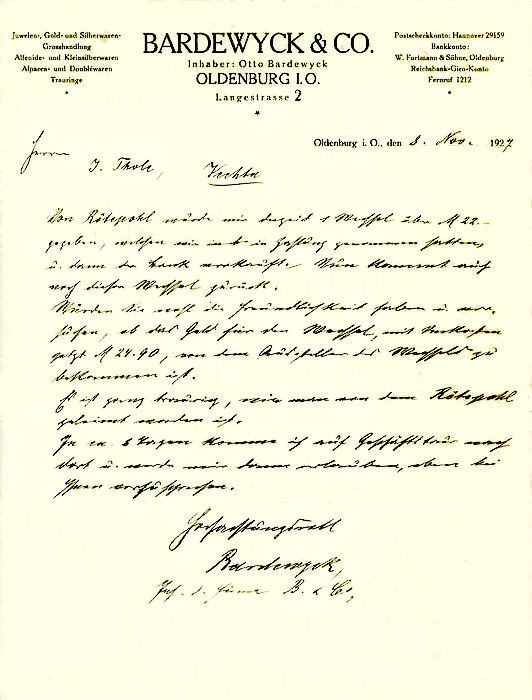 Juwelen-, Gold- und Silberwaren-
Grosshandlung
Alfenide- und Kleinsilberwaren
Alpacca- und Doubléwaren
Trauringe
BARDEWYCK & CO.
Inhaber: Otto Bardewyck
OLDENBURG I.O.
Langestrasse 2
Postscheckkonto: Hannover 29159
Bankkonto:
W. Fortmann & Söhne, Oldenburg
Reichsbank-Giro-Konto
Fernruf 1212
Oldenburg i. O., den 8. Nov. 1927
Herrn
J. Thole, Vechta
Von Rötepohl wurde mir derzeit 1 Wechsel über M 22.-
gegeben, welchen wir in Zahlung genommen hatten,
u. dann der Bank verkauft. Nun kommt auch
noch dieser Wechsel zurück.
Würden Sie wohl die Freundlichkeit haben u. ver-
suchen, ob das Geld für den Wechsel, mit Unkosten
jetzt M 24.90, von dem Aussteller des Wechsels zu
bekommen ist.
Es ist ganz traurig, wie man von dem Rötepohl
geleimt worden ist.
In ca. 6 Tagen komme ich auf Geschäftstour nach
dort u. werde mir dann erlauben, eben bei
Ihnen vorzusprechen.
Hochachtungsvoll
Bardewyck,
Inh. d. Firma B. & Co.